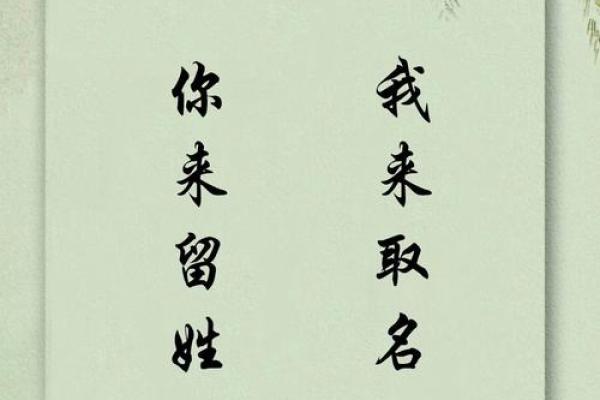 我来取名
你来留姓